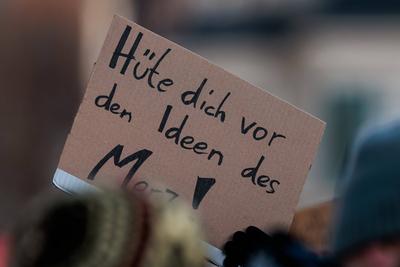 Hüte dich vor
den Ideen des
Merz!